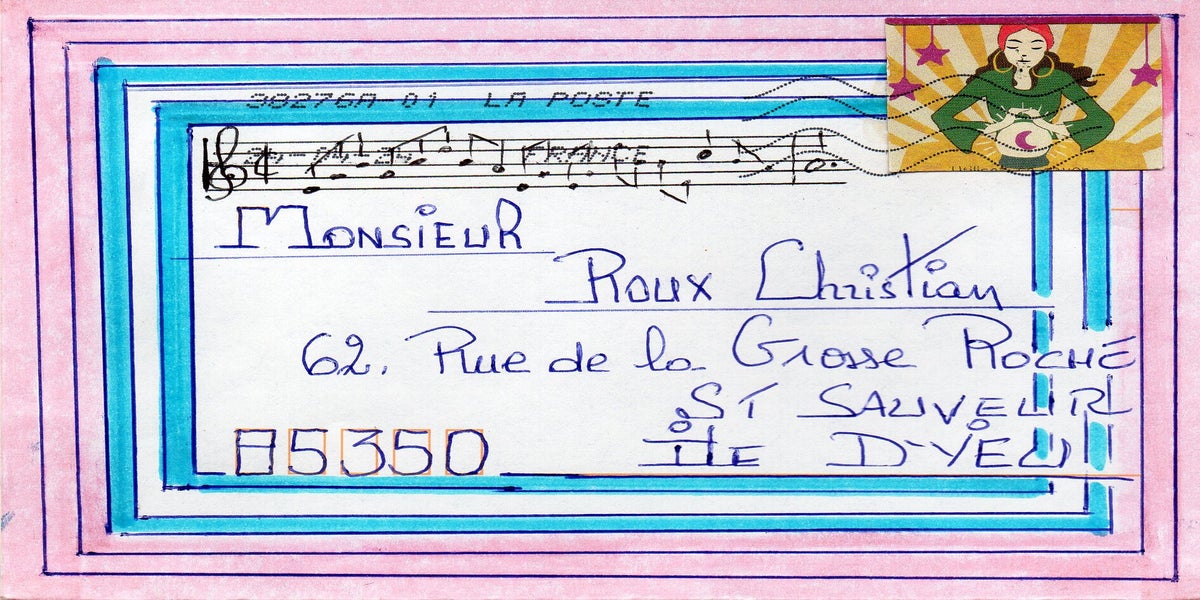 38276A-01 LA POSTE
FRANCE
Monsieur
Roux Christian
62. Rue de la Grosse Roche
ST SAUVEUR
85350 Île D'YEU